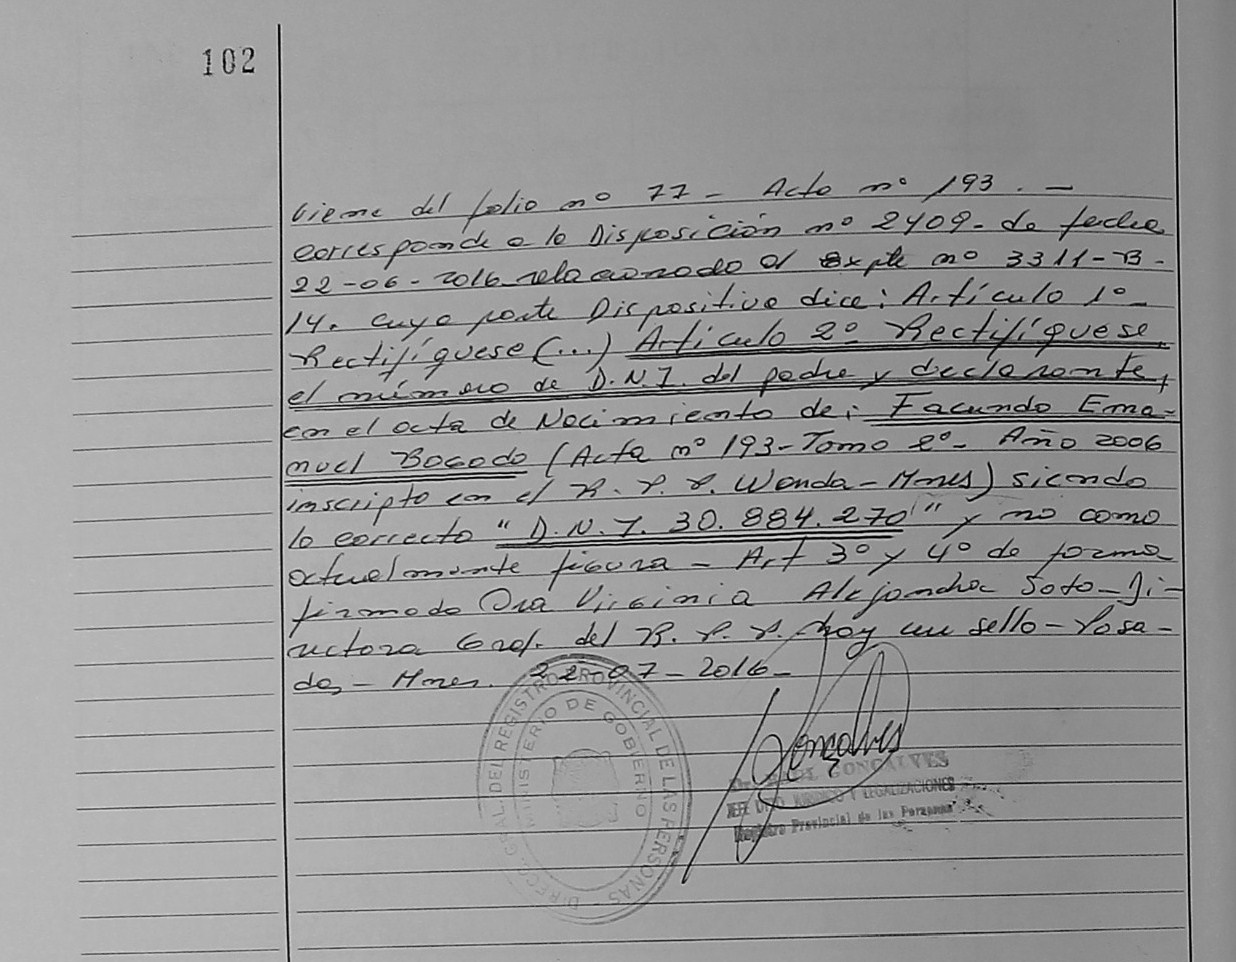 102
viene del folio nº 77 - Acta nº 193. -
corresponde a la Disposición nº 2409 - de fecha
22-06-2016 relacionado al Expte nº 3311-B-
14. cuya parte Dispositiva dice: Artículo 1º -
Rectifíquese (...) Artículo 2º Rectifíquese,
el número de D.N.I. del padre y declarante,
en el acta de Nacimiento de: Facundo Ema-
nuel Bogado (Acta nº 193-Tomo 2º - Año 2006
inscripto en el R.P.P. Wanda - Mnes) siendo
lo correcto "D.N.I. 30.884.270" y no como
actualmente figura - Art 3º y 4º de forma
firmado Dra Virginia Alejandra Soto - Di-
rectora Gral. del R.P.P. hay un sello - Posa-
das - Mnes. 22-07-2016 -
DIRECC. GRAL. DEL REGISTRO PROVINCIAL DE LAS PERSONAS -
MINISTERIO DE GOBIERNO
Gonçalves
Dr. RAUL GONCALVES
JEFE DPTO JURIDICO Y LEGALIZACIONES
Registro Provincial de las Personas